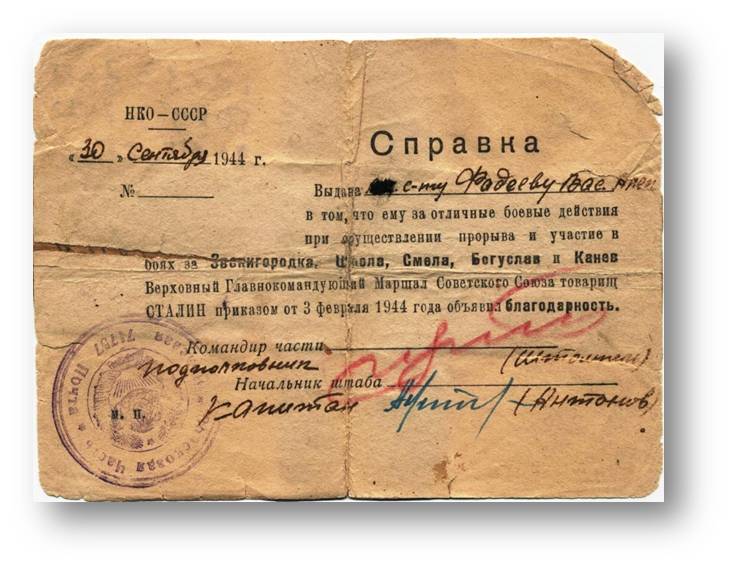 НКО—СССР
«30» Сентября 1944 г.
№
Справка
Выдана с-ту Фадееву Вас.
в том, что ему за отличные боевые действия
при осуществлении прорыва и участие в
боях за Звенигородка, Шпола, Смела, Богуслав и Канев
Верховный Главнокомандующий Маршал Советского Союза товарищ
СТАЛИН приказом от 3 февраля 1944 года объявил благодарность.
Командир части
подполковник
Начальник штаба
капитан (Антонов)
М. П.
Полевая Почта
Войсковая Часть